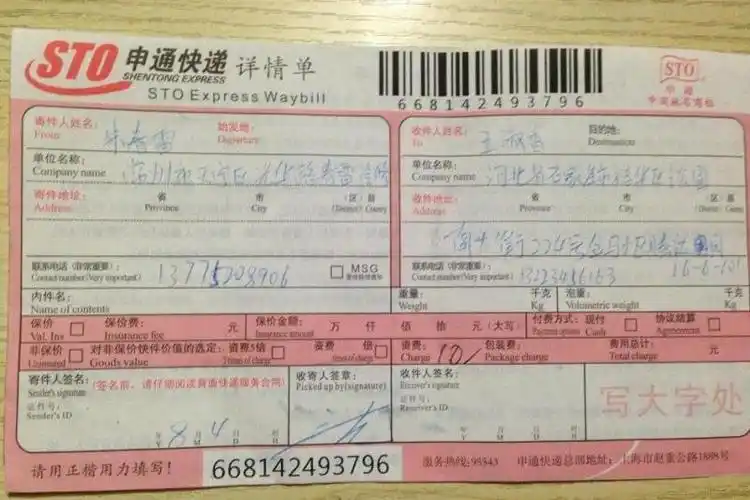 STO 申通快递 详情单
SHENTONG EXPRESS
STO Express Waybill
668142493796
STO
申通
寄件人姓名： 始发地：
From Departure
收件人姓名： 目的地：
To Destination
单位名称：
Company name
单位名称：
Company name 河北省石家庄
寄件地址： 省 市 区 县
Address: Province City (District) County
收件地址： 省 市 区 县
Address: Province City (District) County
联系电话（非常重要）：
Contact number(Very important) 13775208906 MSG
联系电话（非常重要）：
Contact number(Very important)
内件名：
Name of contents
重量： 千克 泡重： 千克
Weight Kg Volumetric weight Kg
保价 保价费： 元 保价金额： 万 仟 佰 拾 元（大写）
Val. Ins Insurance fee Insurance amount
付款方式：现付 协议结算
Payment option Cash Agreement
非保价 对非保价快件价值的选定：资费5倍 资费 倍
Uninsured Goods value 5 times of charge times of charge
资费： 包装费： 费用总计： 元
Charge 10/ Package charge Total charge
寄件人签名：（签名前，请仔细阅读背面快递服务合同）
Sender's signature
证件号：
Sender's ID
年 8 月 4 日 时
Y M D H
收寄人签章：
Picked up by(signature)
收件人签名：
Receiver's signature
证件号：
Receiver's ID
写大字处
请用正楷用力填写！
668142493796
服务热线：95543 申通快递总部地址：上海市赵重公路1888号